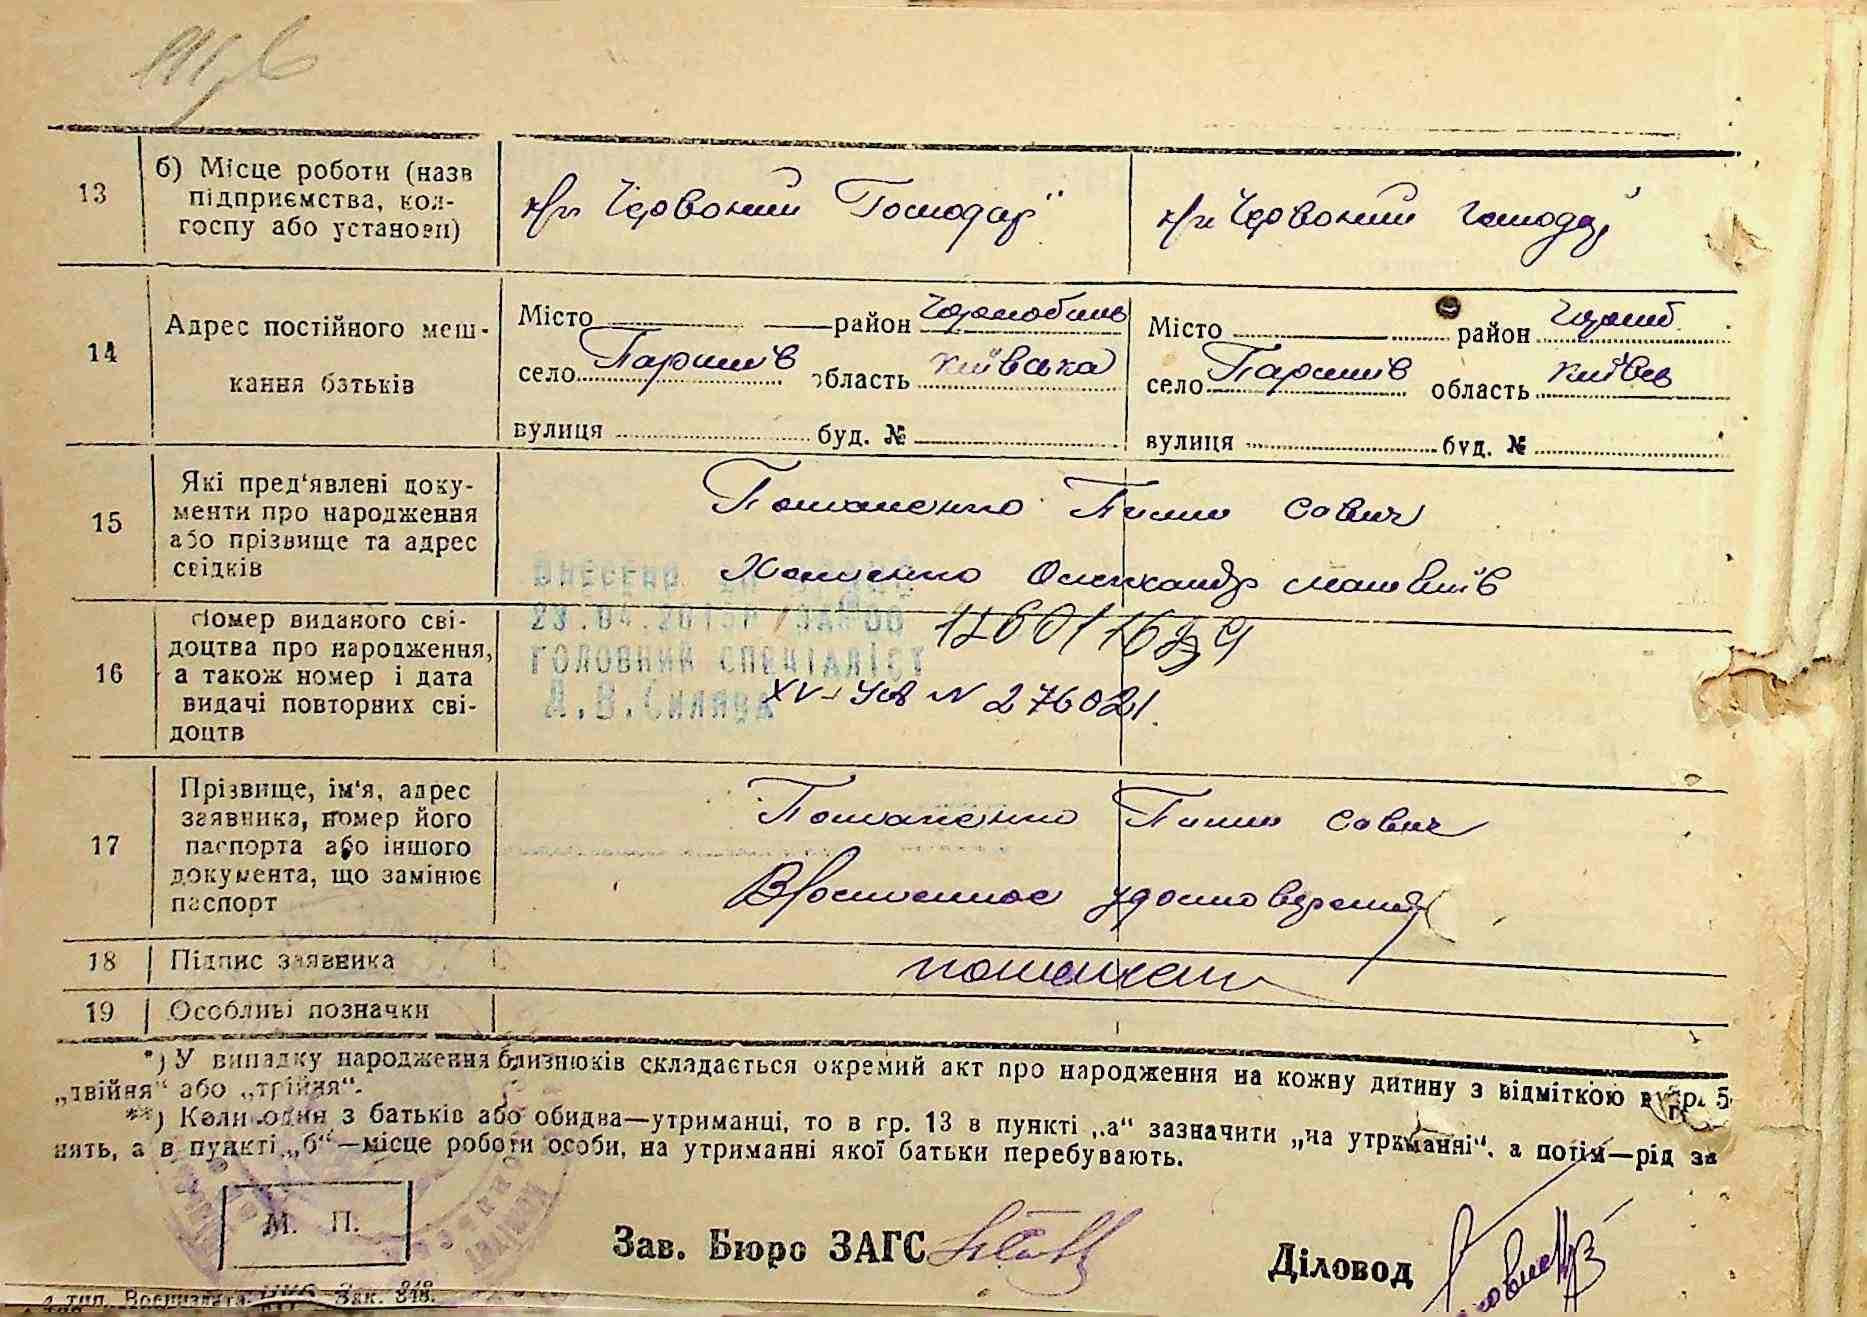 13
б) Місце роботи (назв
підприємства, кол-
госпу або установи)
к/г Червоний Господар"
к/г Червоний Господар"
14
Адрес постійного меш-
кання батьків
Місто район Чорнобиль
село Паришів область Київська
вулиця буд. №
Місто район Чорноб.
село Паришів область Київс
вулиця буд. №
15
Які пред'явлені доку-
менти про народження
або прізвище та адрес
свідків
Потапенко Пилип Савич
Хоменко Олександр
16
Номер виданого сві-
доцтва про народження,
а також номер і дата
видачі повторних сві-
доцтв
ВНЕСЕНО
23.04.2015р
ГОЛОВНИЙ СПЕЦІАЛІСТ
XV-УА N 276021.
17
Прізвище, ім'я, адрес
заявника, номер його
паспорта або іншого
документа, що замінює
паспорт
Потапенко Пилип Савич
удостоверение
18
Підпис заявника
19
Особливі позначки
*) У випадку народження близнюків складається окремий акт про народження на кожну дитину з відміткою в гр. 5
„двійня" або „трійня".
**) Коли один з батьків або обидва—утриманці, то в гр. 13 в пункті „а" зазначити „на утриманні", а потім—рід за
нять, а в пункті „б"—місце роботи особи, на утриманні якої батьки перебувають.
М. П.
Зав. Бюро ЗАГС
Діловод
Зак. 348.